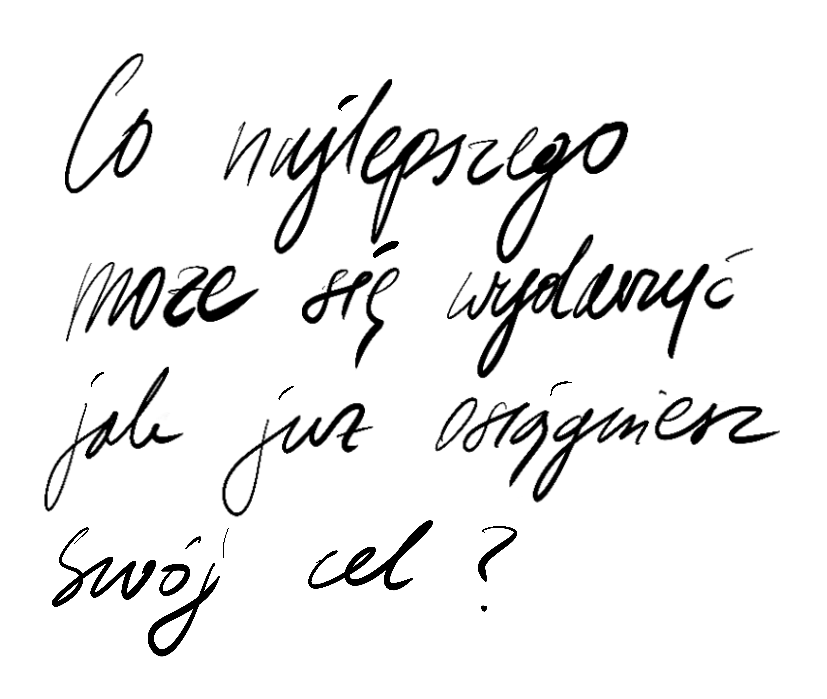 Co najlepszego
może się wydarzyć
jak już osiągniesz
swój cel?